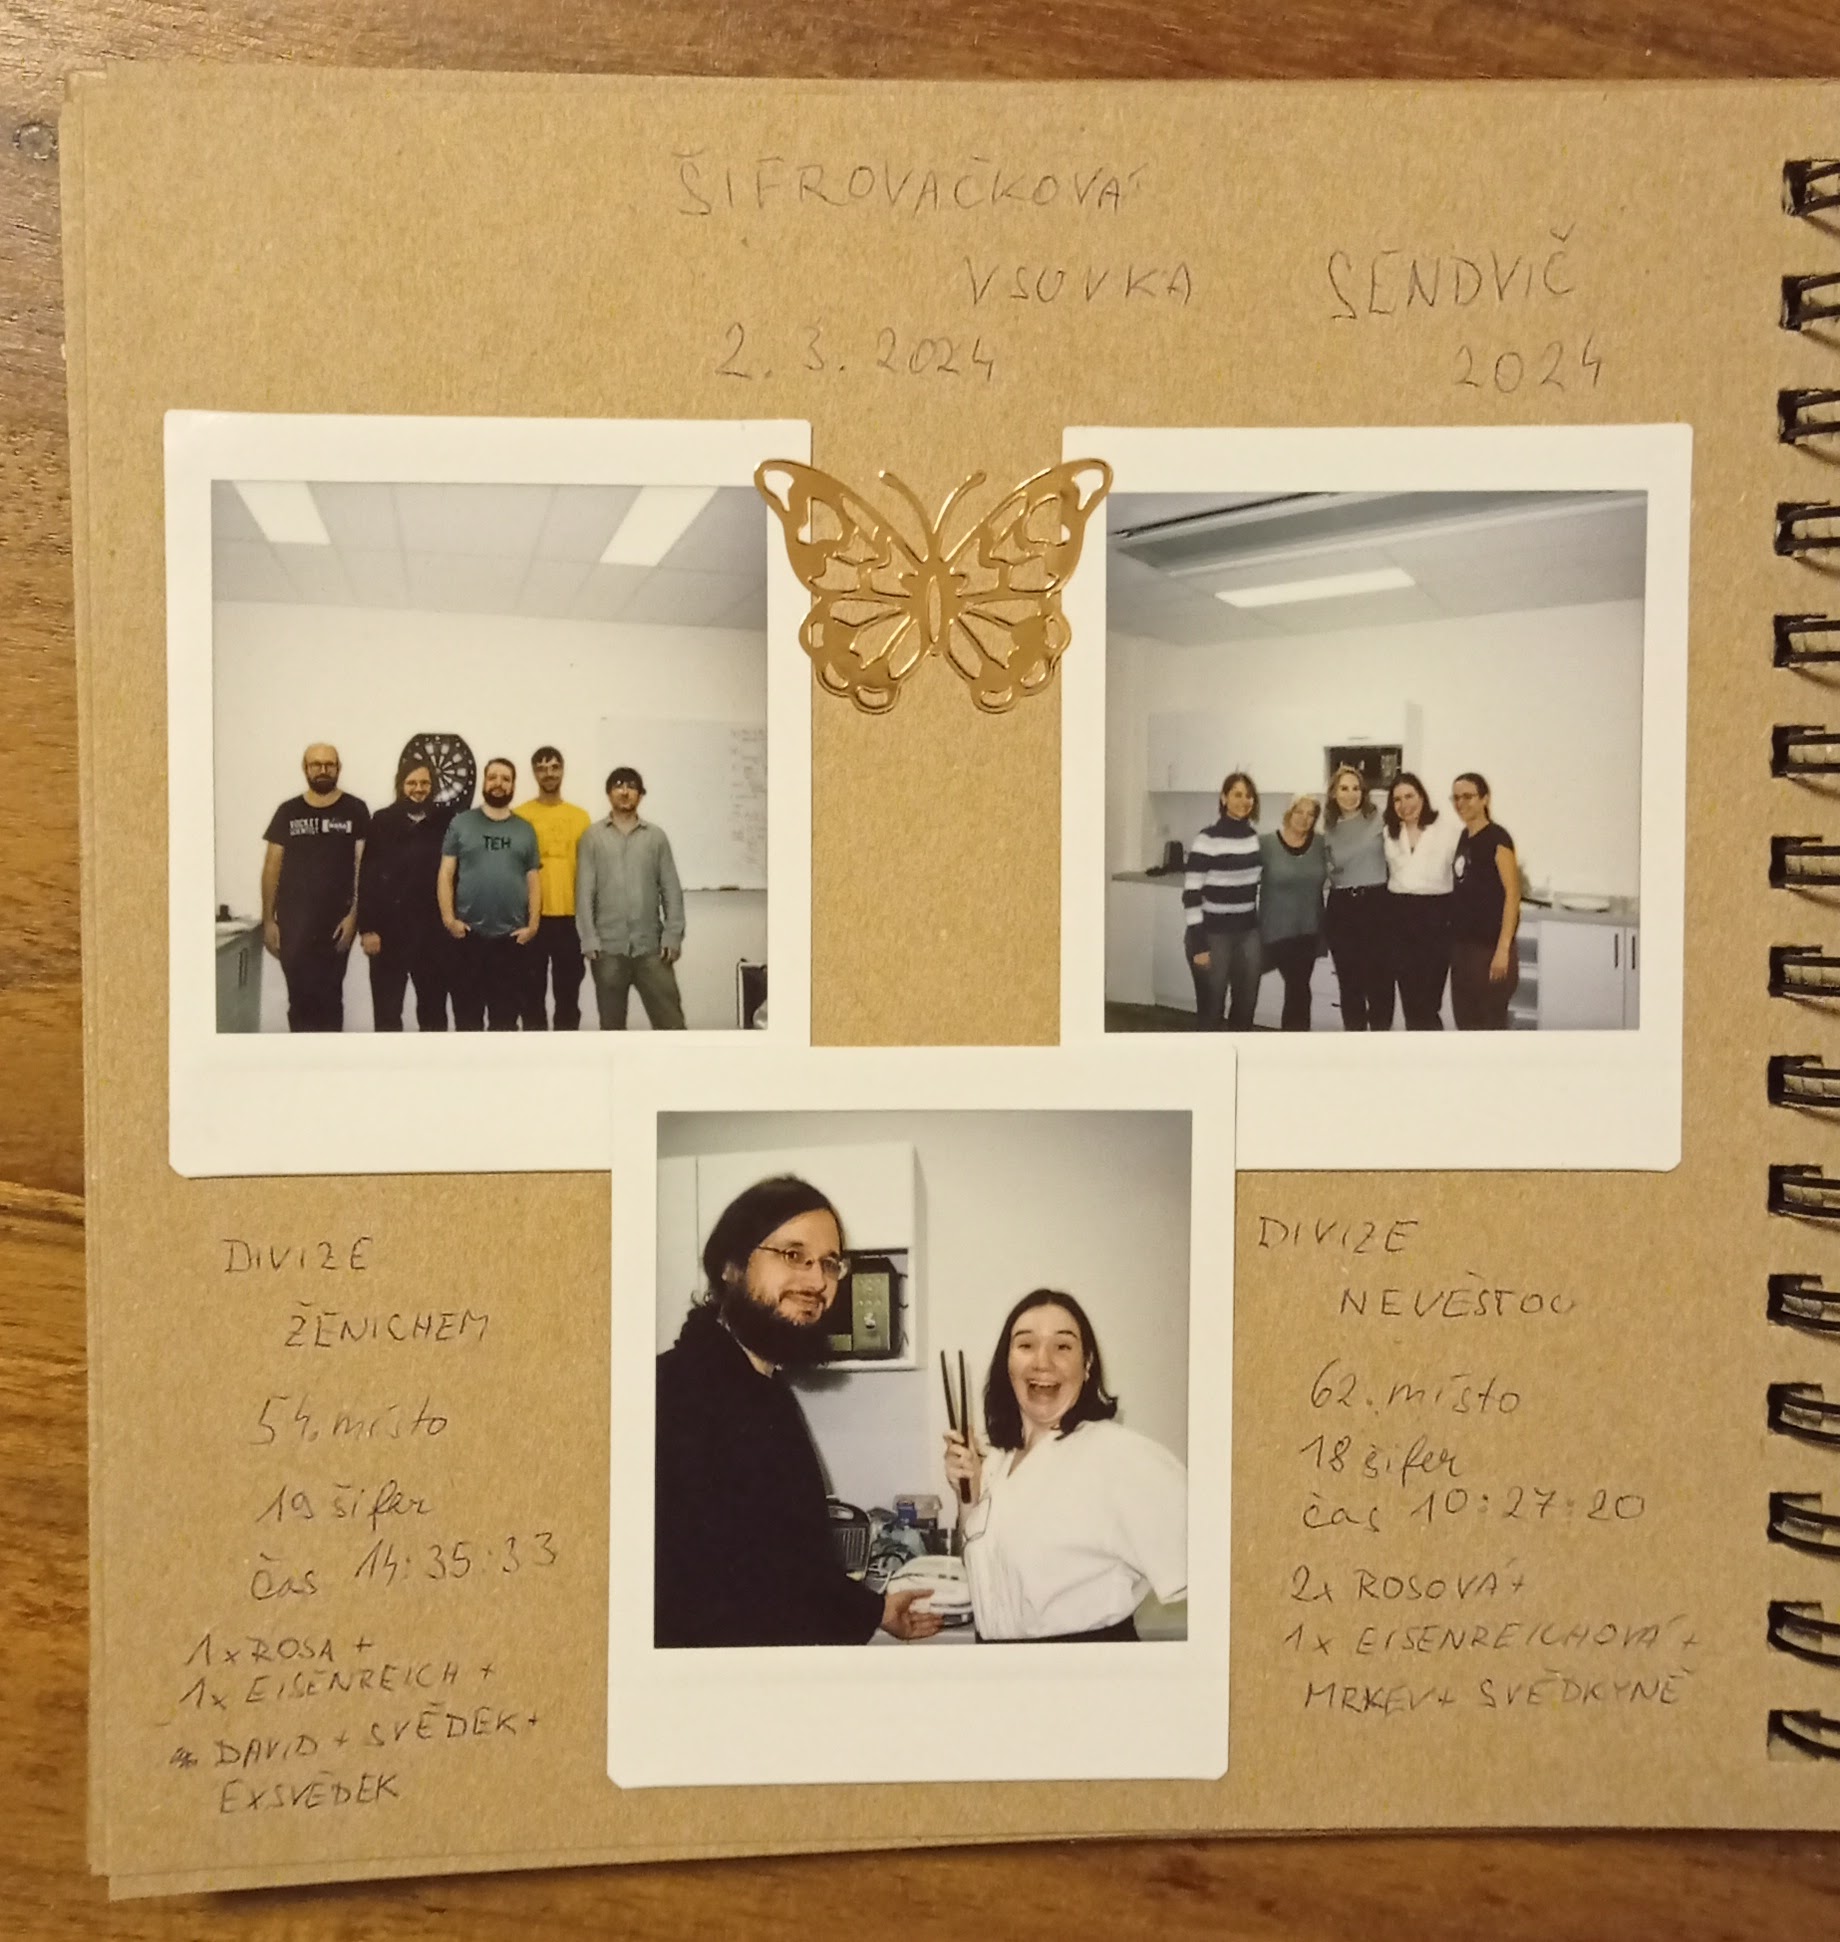 ŠIFROVAČKOVÁ
VSUVKA
2. 3. 2024
SENDVIČ
2024
ROCKET
SCIENTIST
TEH
DIVIZE
ŽENICHEM
54. místo
19 šifer
čas 14:35:33
1x ROSA +
1x EISENREICH +
DAVID + SVĚDEK +
EXSVĚDEK
DIVIZE
NEVĚSTOU
62. místo
18 šifer
čas 10:27:20
2x ROSOVÁ +
1x EISENREICHOVÁ +
MRKEV + SVĚDKYNĚ